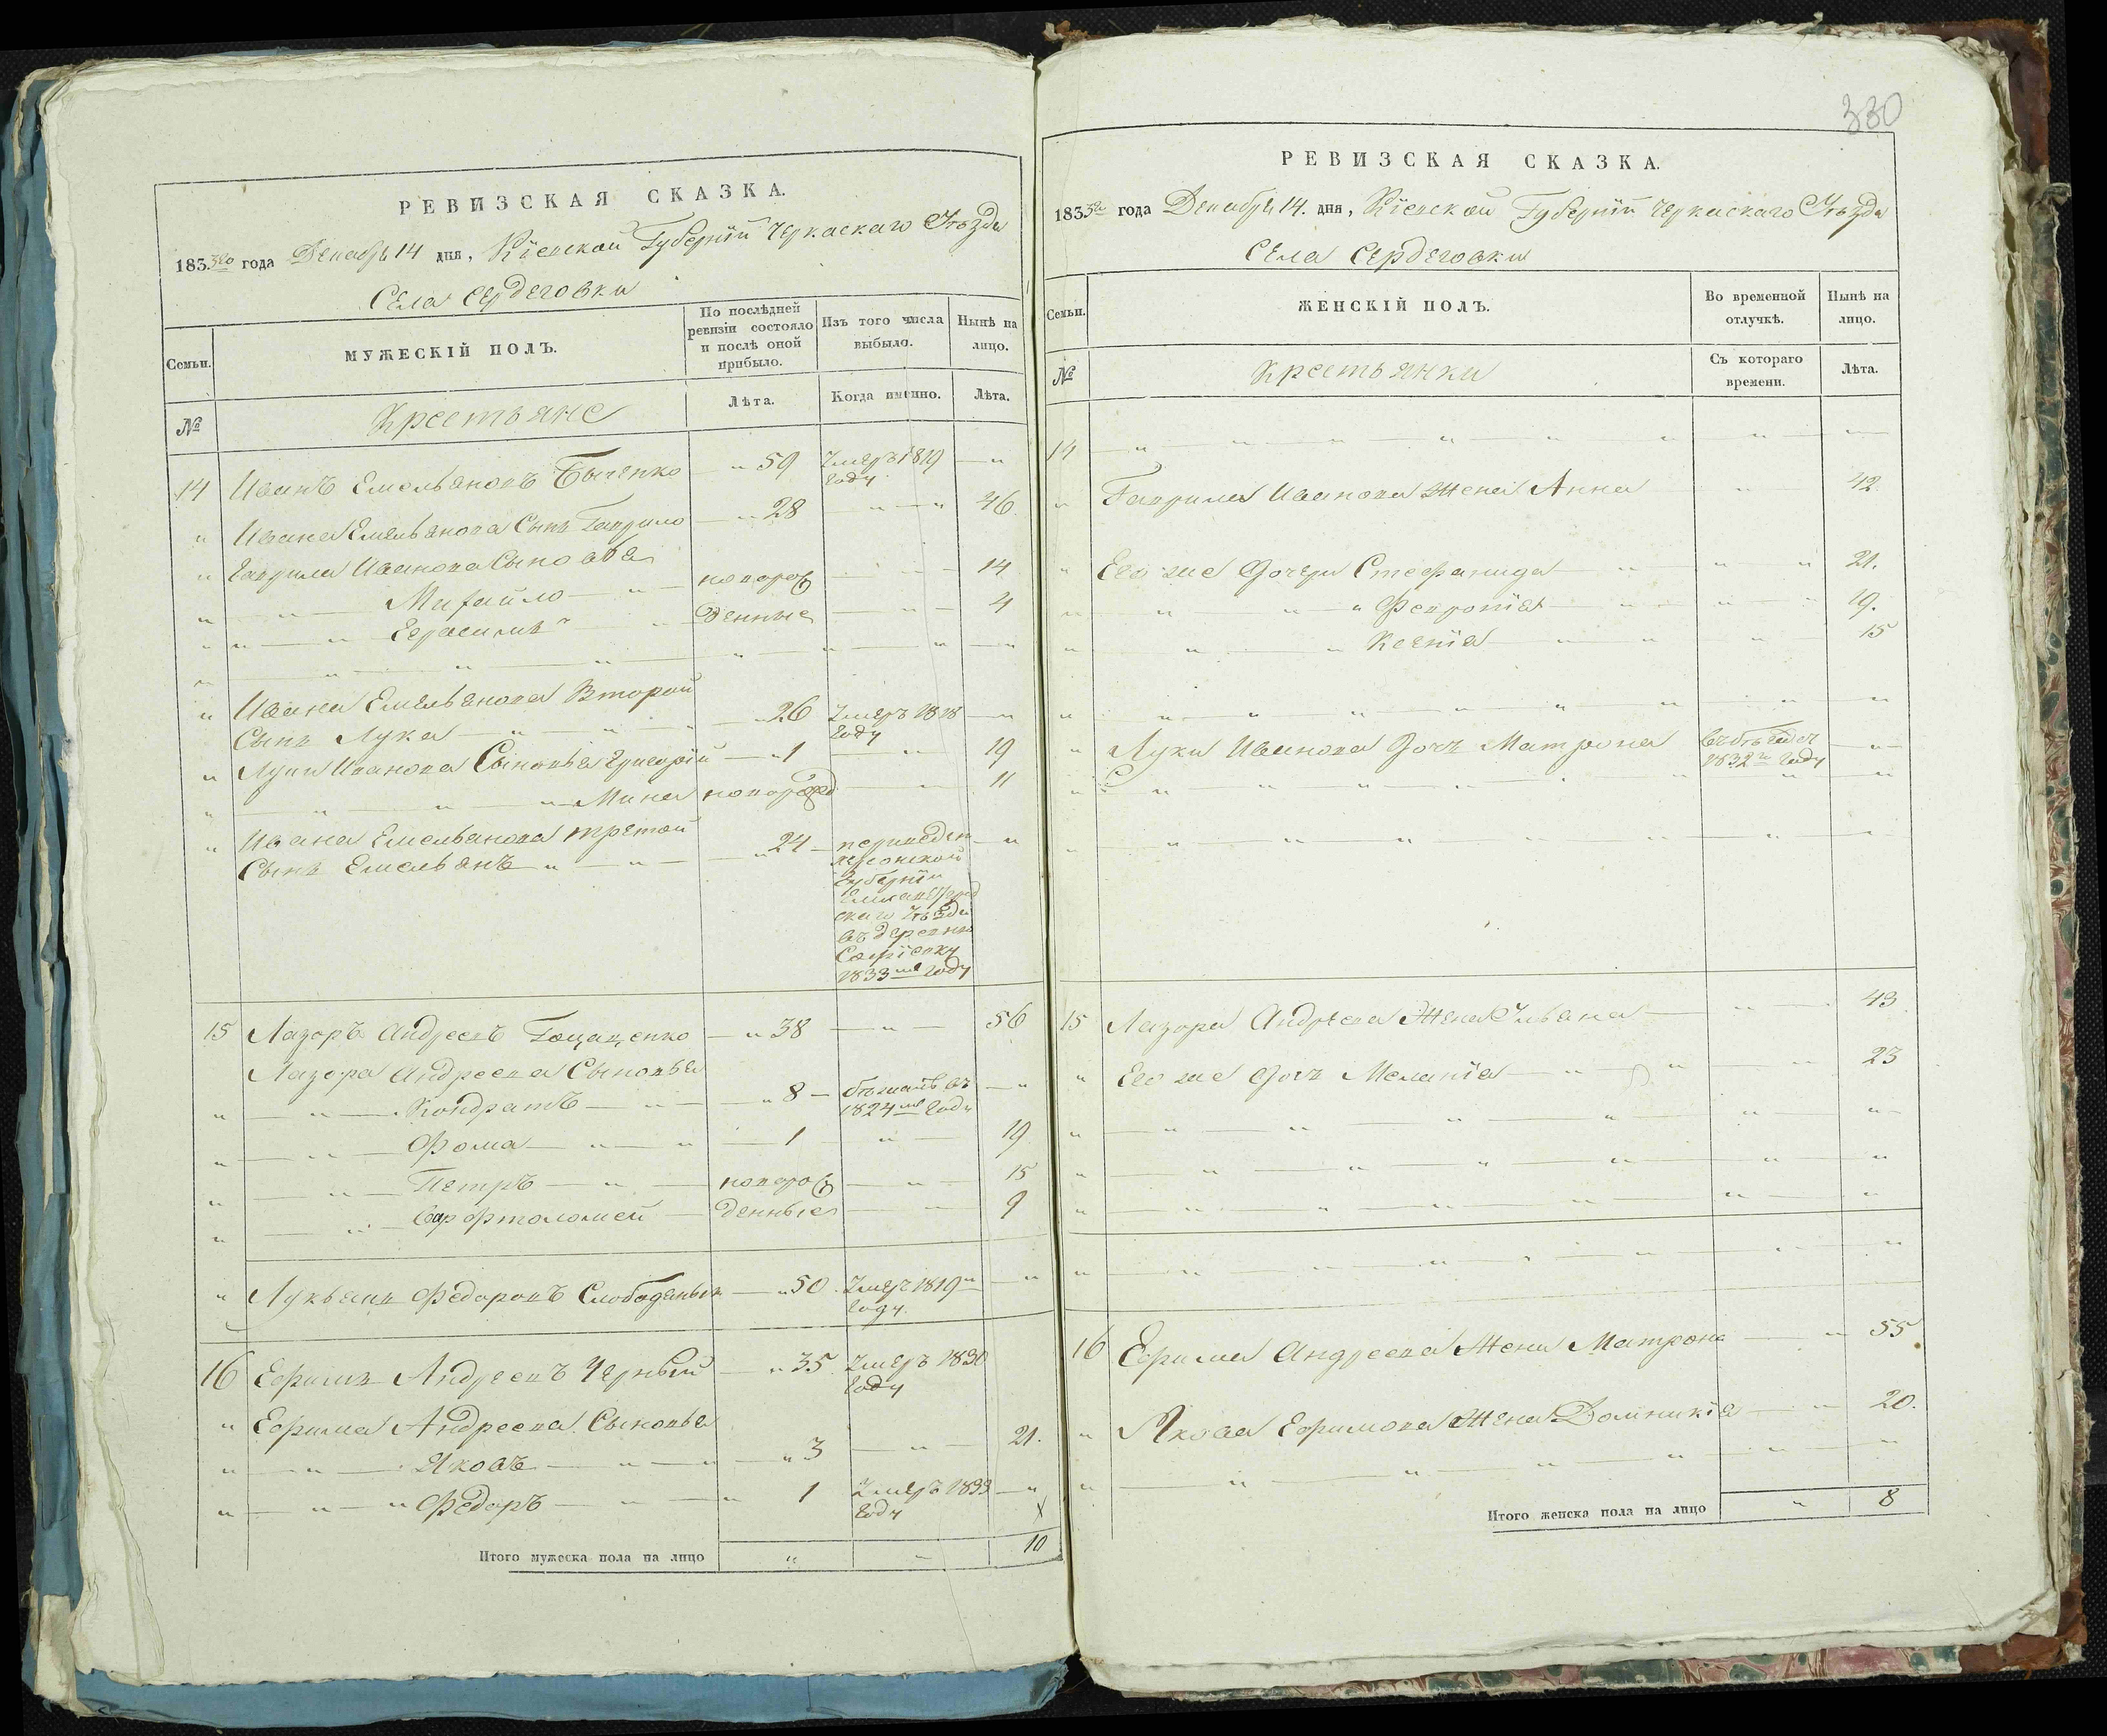 РЕВИЗСКАЯ СКАЗКА.
183.3го года Декабря 14 дня, Кіевской Губерніи Черкаскаго Уѣзда
Села Сердеговки
Семьи. МУЖЕСКІЙ ПОЛЪ. По послѣдней ревизіи состояло и послѣ оной прибыло. Изъ того числа выбыло. Нынѣ на лицо.
№ Крестьяне Лѣта. Когда именно. Лѣта.
14 Иванъ Емельяновъ Быченко — " 59 Умеръ 1819 — "
году
" Ивана Емельянова Сынъ Гаврило — " 28 — " — " 46.
" Гаврила Иванова Сыновья
" — " — Михайло — " — новорож — " — 14
" " — " Герасимъ " — денные — " — 4
" — " — " — " — " — " — " — "
" Ивана Емельянова Второй
Сынъ Лука — " — " — " — " 26 Умеръ 1818 — "
году
" Луки Иванова Сыновья Григорій — " 1 — " — 19
" — " — " — " Мина новорожд — " — 11
" Ивана Емельянова третій
Сынъ Емельянъ — " — " — " 24 — переведен — "
херсонской
Губерніи
Елисаветград
скаго Уѣзда
въ деревню
Софіевку
1833мъ году
15 Лазоръ Андреевъ — " 38 — " — 56
Лазора Андреева Сыновья
" — " — Кондратъ — " — " 8 — бѣжалъ въ — "
1824мъ году
" — " — Фома — " — " — 1 — " 19
" — " — Петръ — " — новорож — " — 15
" — " — Варфтоломей — денные — " — 9
" Лукьянъ Федоровъ — " 50. Умеръ 1819 — "
году.
16 Ефимъ Андреевъ Черный — " 35. Умеръ 1830
году
" Ефима Андреева Сыновья
" — " — Яковъ — " — " — " 3 — " — 21.
" — " — " Федоръ — " — " 1 Умеръ 1833 — "
году х
Итого мужеска пола на лицо " " 10
330
РЕВИЗСКАЯ СКАЗКА.
183.3го года Декабря 14. дня, Кіевской Губерніи Черкаскаго Уѣзда
Села Сердеговки
Семьи. ЖЕНСКІЙ ПОЛЪ. Во временной отлучкѣ. Нынѣ на лицо.
№ Крестьянки Съ котораго времени. Лѣта.
14 — " — " — " — " — " — " — " — "
" Гаврила Иванова Жена Анна — " — 42
" Его же Дочери Стефанида — " — " — " 21.
" — " — " — " Февронія — " — " — " 19.
" — " — " Ксенія — " — " — " 15
" — " — " — " — " — " — " — "
" Луки Иванова Дочь Матрона въ бѣгахъ — " —
1832го году
" — " — " — " — " — " — " — "
" — " — " — " — " — " — " — "
15 Лазора Андреева Жена Ульяна — " — 43
" Его же Дочь Меланія — " — " — " 23
" — " — " — " — " — " — "
" — " — " — " — " — " — "
" — " — " — " — " — " — "
" — " — " — " — " — " — "
16 Ефима Андреева Жена Матрона — " 55
" Якова Ефимова Жена Домникія — " 20.
" — " — " — " — " — " — "
Итого женска пола на лицо " 8